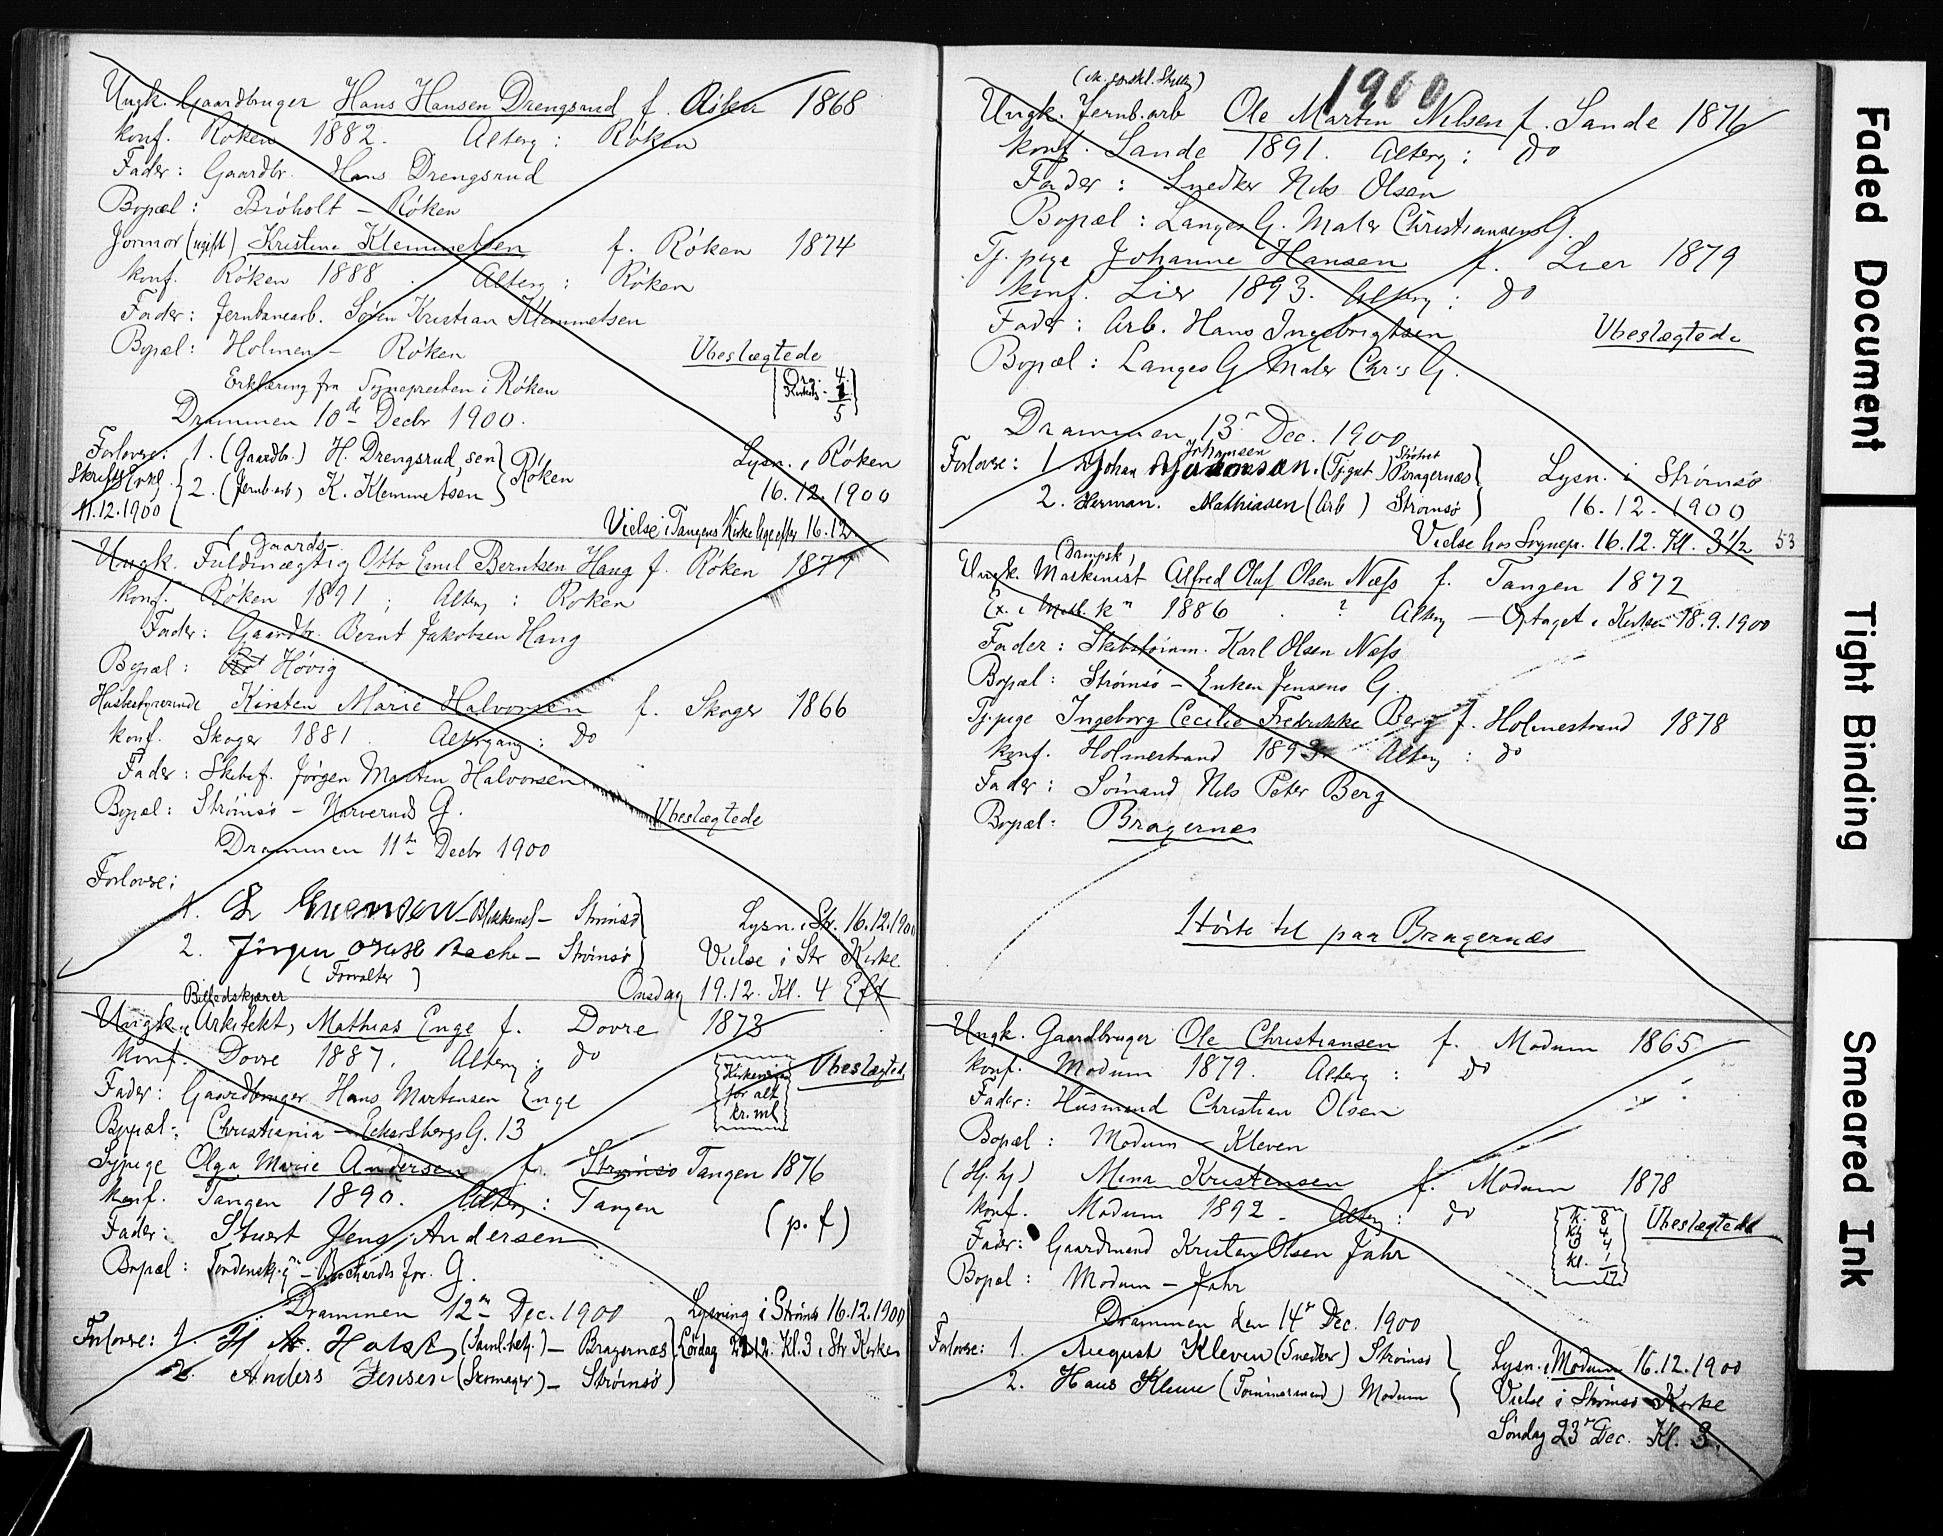 Ungk. Gaardbruger Hans Hansen Drengsrud f. Röken 1868
konf. Röken 1882. Alterg: Röken
Fader: Gaardbr. Hans Drengsrud
Bopæl: Bröholt – Röken
Jormor (ugift) Kristine Klemmetsen f. Röken 1874
konf. Röken 1888. Alterg: Röken
Fader: Jernbanearb. Sören Kristian Klemmetsen
Bopæl: Holmen – Röken
Ubeslægtede
Erklæring fra Sognepresten i Röken
Org. 4
Kirketj. 1
5
Drammen 10de Decbr 1900.
Forlovere: 1. (Gaardbr.) H. Drengsrud, sen } Röken
Skriftl. Erkl. 2. (Jernb.arb) K. Klemmetsen
11.12.1900
Lysn. i Röken
16.12.1900
Vielse i Tangens Kirke lige efter 16.12
Gaards-
Ungk. Fuldmægtig Otto Emil Berntsen Haug f. Röken 1877
konf. Röken 1891; Alterg: Röken
Fader: Gaardbr. Bernt Jakobsen Haug
Bopæl: Hövig
Husbestyrerinde Kirsten Marie Halvorsen f. Skoger 1866
konf. Skoger 1881 Altergang: Do
Fader: Skibsf. Jörgen Martin Halvorsen
Bopæl: Strömsö – Narveruds G.
Ubeslægtede
Drammen 11te Decbr 1900
Forlovere:
1. – Strömsö
2. Jörgen Bache – Strömsö
(Forvalter)
Lysn. i Str. 16.12.1900
Vielse i Str Kirke
Onsdag 19.12. Kl. 4 Eft
Billedskjærer
Ungk. Arkitekt, Mathias Enge f. Dovre 1873
konf. Dovre 1887. Alterg: do
Fader: Gaardbruger Hans Martensen Enge
Bopæl: Christiania – Ekersbergs G. 13
Kirken
for alt
kr.
Ubeslægtede
Sypige Olga Marie Andersen f. Strömsö Tangen 1876
konf. Tangen 1890. Alterg: Tangen
Fader: Stuert Jens Andersen
(p. f)
Bopæl: Tordenskj.g – G.
Drammen 12te Dec. 1900
Lysning i Strömsö 16.12.1900
Forlovere: 1. H. A. Holst, – Bragernæs
Lördag 12. Kl. 3 i Str Kirke
2. Anders Jensen (Skomager) – Strömsö
1900
Ungk. Jernb.arb Ole Martin Nilsen f. Sande 1876
konf. Sande 1891. Alterg: do
Fader: Snedker Nils Olsen
Bopæl: Langes G. Maler Christiansens G.
Tj. pige Johanne Hansen f. Lier 1879
konf. Lier 1893. Alterg: do
Fader: Arb. Hans Ingebrigtsen
Ubeslægtede
Bopæl: Langes G Maler Chr's G.
Drammen 13de Dec. 1900
Johansen
Forlovere: 1 Johan Bragernæs
2. Herman. Mathiasen (Arb) Strömsö
Lysn. i Strömsö
16.12.1900
Vielse hos Sognepr. 16.12. Kl. 3 1/2
53
(Dampsk)
Ungk. Maskinist Alfred Oluf Olsen Næss f. Tangen 1872
Ex. i Met. k. 1886 ? Alterg – Optaget i Kirken 18.9.1900
Fader: Skibstöm. Karl Olsen Næss
Bopæl: Strömsö – Enken Jensens G.
Tj.pige Ingeborg Cecilie Fredrikke Berg f. Holmestrand 1878
konf. Holmestrand 1893 Alterg: do
Fader: Sömand Nils Peter Berg
Bopæl: Bragernæs
Hörte til paa Bragernæs
Ungk. Gaardbruger Ole Christiansen f. Modum 1865
konf. Modum 1879. Alterg: do
Fader: Husmand Christian Olsen
Bopæl: Modum – Kleven
(Hj. hj) Mina Kristensen f. Modum 1878
konf. Modum 1892 – Alterg: do
Fader: Gaardmand Kristen Olsen Jahr
k. 8
4
4
kl. 1
17
Ubeslægtede
Bopæl: Modum – Jahr
Drammen den 14de Dec. 1900
Forlovere: 1. August Kleven (Snedker) Strömsö
2. Hans Kleven (Tömmermand) Modum
Lysn. i Modum 16.12.1900
Vielse i Strömsö Kirke
Söndag 23de Dec. Kl. 3.
Faded Document
Tight Binding
Smeared Ink